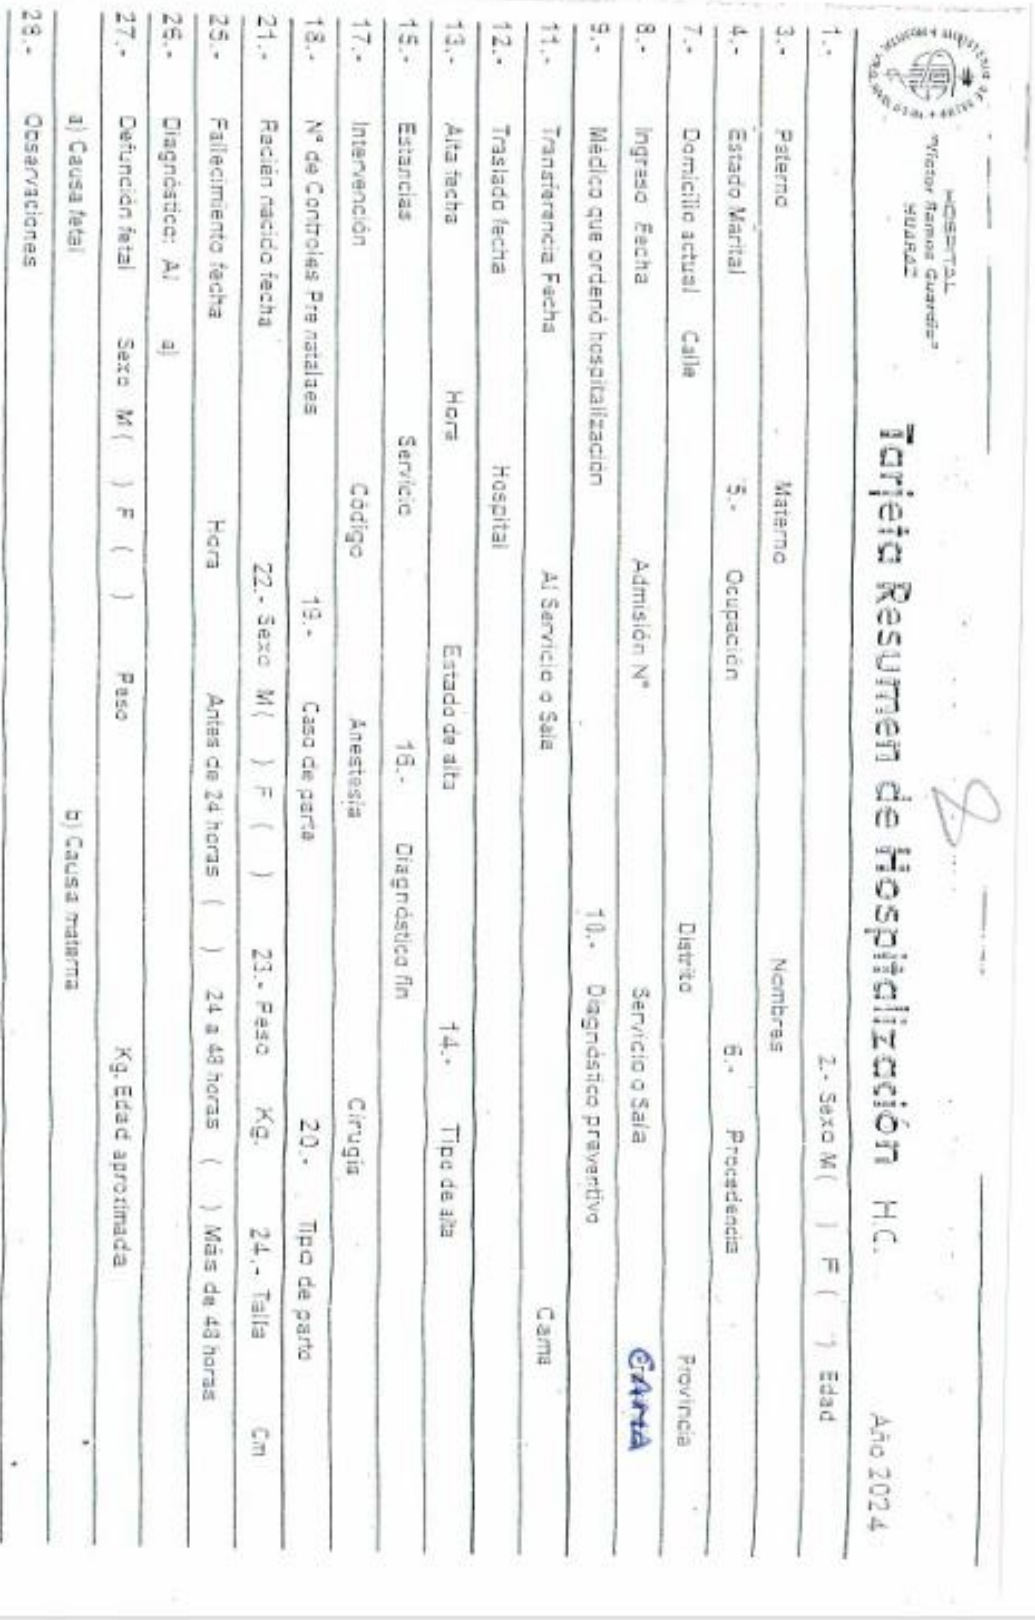 HOSPITAL
"Víctor Ramos Guardia"
HUARAZ
Tarjeta Resumen de Hospitalización H.C. Año 2024
1.- 2.- Sexo M ( ) F ( ) Edad
3.- Paterno Materno Nombres
4.- Estado Marital 5.- Ocupación 6.- Procedencia
7.- Domicilio actual Calle Distrito Provincia
8.- Ingreso Fecha Admisión N° Servicio o Sala CAMA
9.- Médico que ordenó hospitalización 10.- Diagnóstico preventivo
11.- Transferencia Fecha Al Servicio o Sala Cama
12.- Traslado fecha Hospital
13.- Alta fecha Hora Estado de alta 14.- Tipo de alta
15.- Estancias Servicio 16.- Diagnóstico fin
17.- Intervención Código Anestesia Cirugía
18.- N° de Controles Pre natalaes 19.- Caso de parto 20.- Tipo de parto
21.- Recién nacido fecha 22.- Sexo M ( ) F ( ) 23.- Peso Kg. 24.- Talla Cm
25.- Fallecimiento fecha Hora Antes de 24 horas ( ) 24 a 48 horas ( ) Más de 48 horas
26.- Diagnóstico: A) a)
27.- Defunción fetal Sexo M ( ) F ( ) Peso Kg. Edad aproximada
a) Causa fetal b) Causa materna
28.- Observaciones